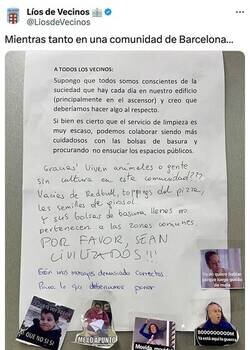 Líos de Vecinos
@LiosdeVecinos
Mientras tanto en una comunidad de Barcelona...
A TODOS LOS VECINOS:
Supongo que todos somos conscientes de la
suciedad que hay cada día en nuestro edificio
(principalmente en el ascensor) y creo que
deberíamos hacer algo al respecto.
Si bien es cierto que el servicio de limpieza es
muy escaso, podemos colaborar siendo más
cuidadosos con las bolsas de basura y
procurando no ensuciar los espacios públicos.
Gracias! Viven animales o gente
sin cultura en esta comunidad???
Vacíes de Redbull, toppings del pizza,
les semilles de girasol
y sus bolsas de basura llenes no
pertenecen a las zones comunes.
POR FAVOR, SEAN
CIVILIZADOS!!!
Son mensajes demasiado correctos
Para lo que deberíamos poner
QUE NO SI SI
ME LO APUNTO
Movida, movida
Yo no quiero hablar
porque luego quedo
de mala
BOOOOOOOOM
Ya está aquí la guerra